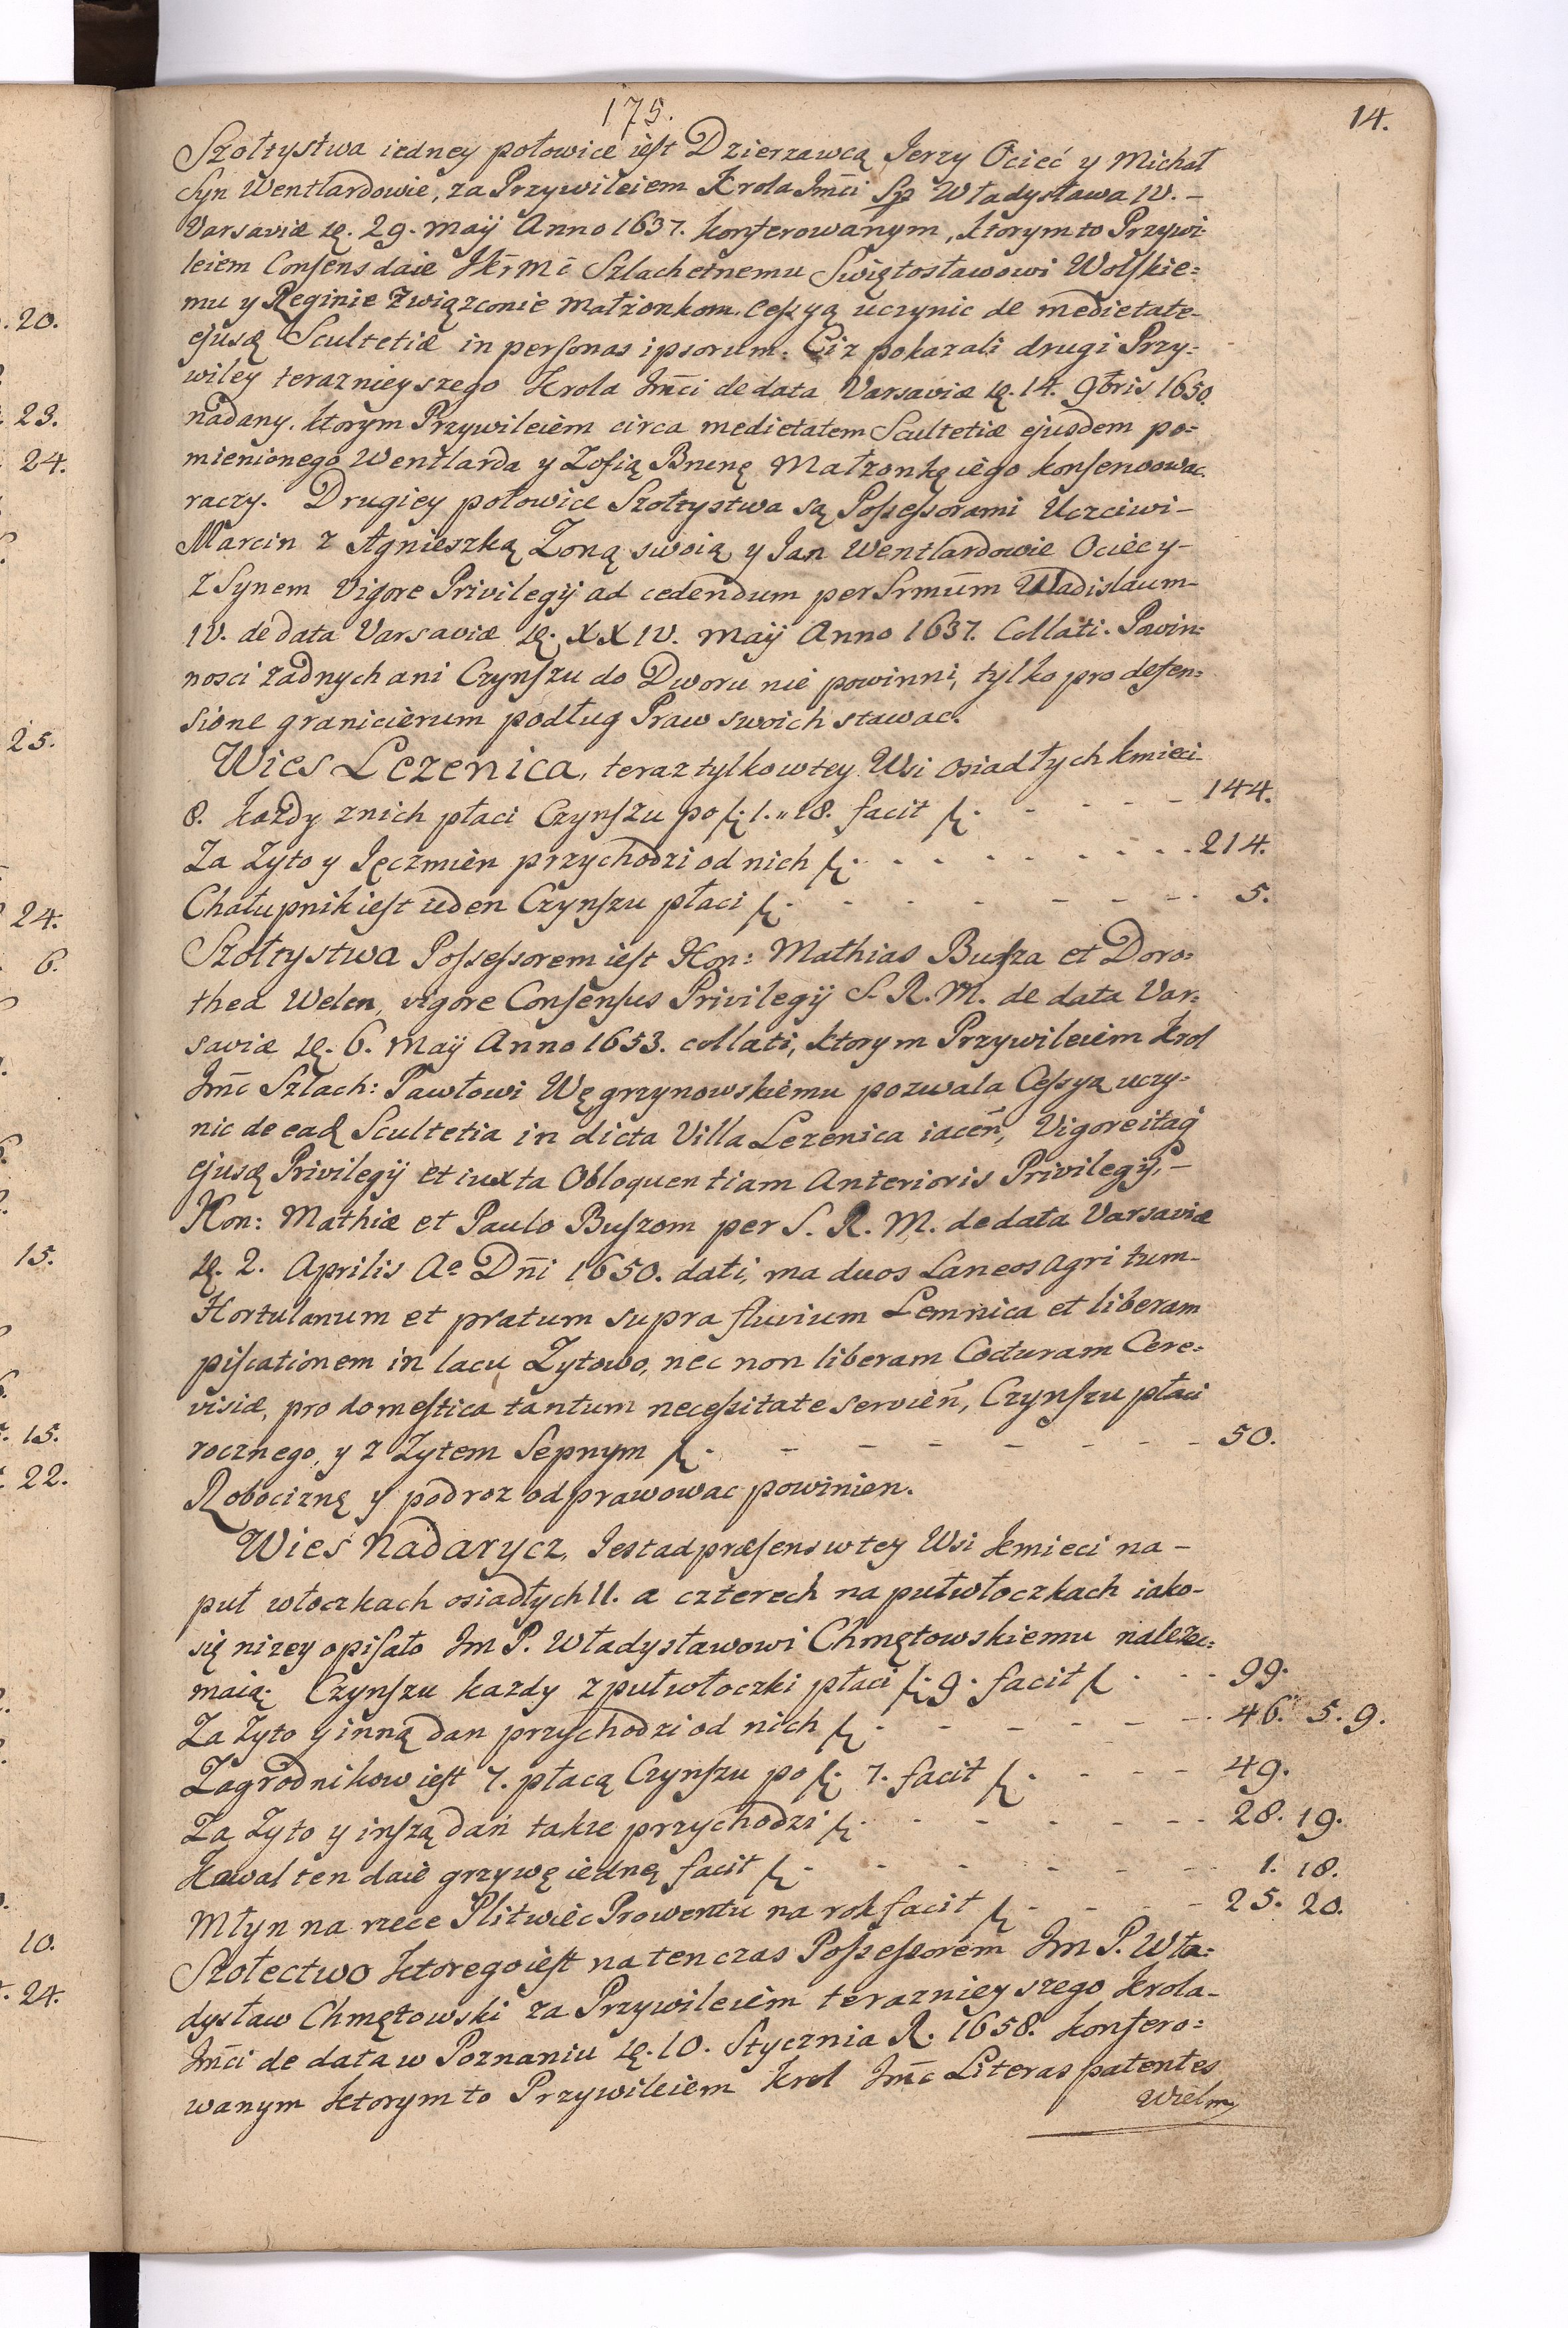 175.
14.
Szołtystwa iedney połowice iest Dzierzawcą Jerzy Ociec y Michał
Syn Wentlardowie, za Przywileiem Krola Jmci Sp Władysława IV. –
Varsaviæ 29. Maÿ Anno 1637. konferowanym, ktorymto Przywi-
leiem Consens daie JKrMc Szlachetnemu Swiętosławowi Wolskie=
mu y Reginie Związconie Małzonkom. Cessyą uczynic de medietate-
ejusą Scultetiæ in personas ipsorum. Ciz pokazali drugi Przy=
wiley teraznieyszego Krola Jmci de data Varsaviæ 14. 9bris 1650.
nadany. ktorym Przywileiem circa medietatem Scultetiæ ejusdem po=
mienionego Wentlarda y Zofią Brunę Małzonkę iego konsensowac
raczy. Drugiey połowice Szołtystwa są Possessorami Uczciwi –
Marcin z Agnieszką Zoną swoią y Jan Wentlardowie Ociec y –
z Synem Vigore Privilegij ad cedendum per Srmum Wladislaum –
IV. de data Varsaviæ XXIV. Maÿ Anno 1637. Collati. Powin=
nosci zadnych ani Czynszu do Dworu nie powinni, tylko pro defen=
sione granicierum podług Praw swoich stawac.
Wies Lezenica, teraz tylko w tey Wsi osiadłych kmieci
8. kazdy z nich płaci Czynszu po f. 1. „ 18. facit f. - - - - 144.
Za Zyto y Jęczmien przychodzi od nich f. - - - - - - - 214.
Chałupnik iest ieden Czynszu płaci f. - - - - - - - 5.
Szołtystwa Possessorem iest Hon: Mathias Busza et Doro=
thea Welen, vigore Consensus Privilegij S. R. M. de data Var=
saviæ 6. Maÿ Anno 1653. collati, ktorym Przywileiem Krol
Jmc Szlach: Pawłowi Węgrzynowskiemu pozwala Cessyą uczy=
nic de eadą Scultetia in dicta Villa Lezenica iaceń, Vigore itaq
ejusą Privilegij et iuxta Obloquentiam Anterioris Privilegij, –
Hon: Mathiæ et Paulo Buszom per S. R. M. de data Varsaviæ
2. Aprilis Ao Dni 1650. dati, ma duos Laneos agri tum –
Hortulanum et pratum supra fluvium Lemnica et liberam
piscationem in lacu Zytowo, nec non liberam Cocturam Cere=
visiæ, pro domestica tantum necessitate servień, Czynszu płaci
rocznego, y z Zytem Sepnym f. - - - - - - - 50.
Robociznę y podroz odprawowac powinien.
Wies Nadarycz, Jest ad præsens w tey Wsi kmieci na –
puł włoczkach osiadłych 11. a czterech na pułwłoczkach iako –
się nizey opisało Jm P. Władysławowi Chmętowskiemu nalezec=
maią. Czynszu kazdy z pułwłoczki płaci f. 9. facit f. - - - 99.
Za Zyto y inną dan przychodzi od nich f. - - - - - - 46. 5. 9.
Zagrodnikow iest 7. płacą Czynszu po f. 7. facit f. - - - - 49.
Za Zyto y inszą dań takze przychodzi f. - - - - - - 28. 19.
Kowal ten daie grzywę iednę facit f. - - - - - - 1. 18.
Młyn na rzece Plitwiec Prowentu na rok facit f. - - - - 25. 20.
Szołectwo ktorego iest na ten czas Possessorem Jm P. Wła=
dysław Chmętowski za Przywileiem teraznieyszego Krola –
Jmci de data w Poznaniu 10. Stycznia R. 1658. konfero=
wanym ktorym to Przywileiem Krol Jmc Literas patentes
Wielm
20.
23.
24.
25.
24.
6.
15.
15.
22.
10.
24.